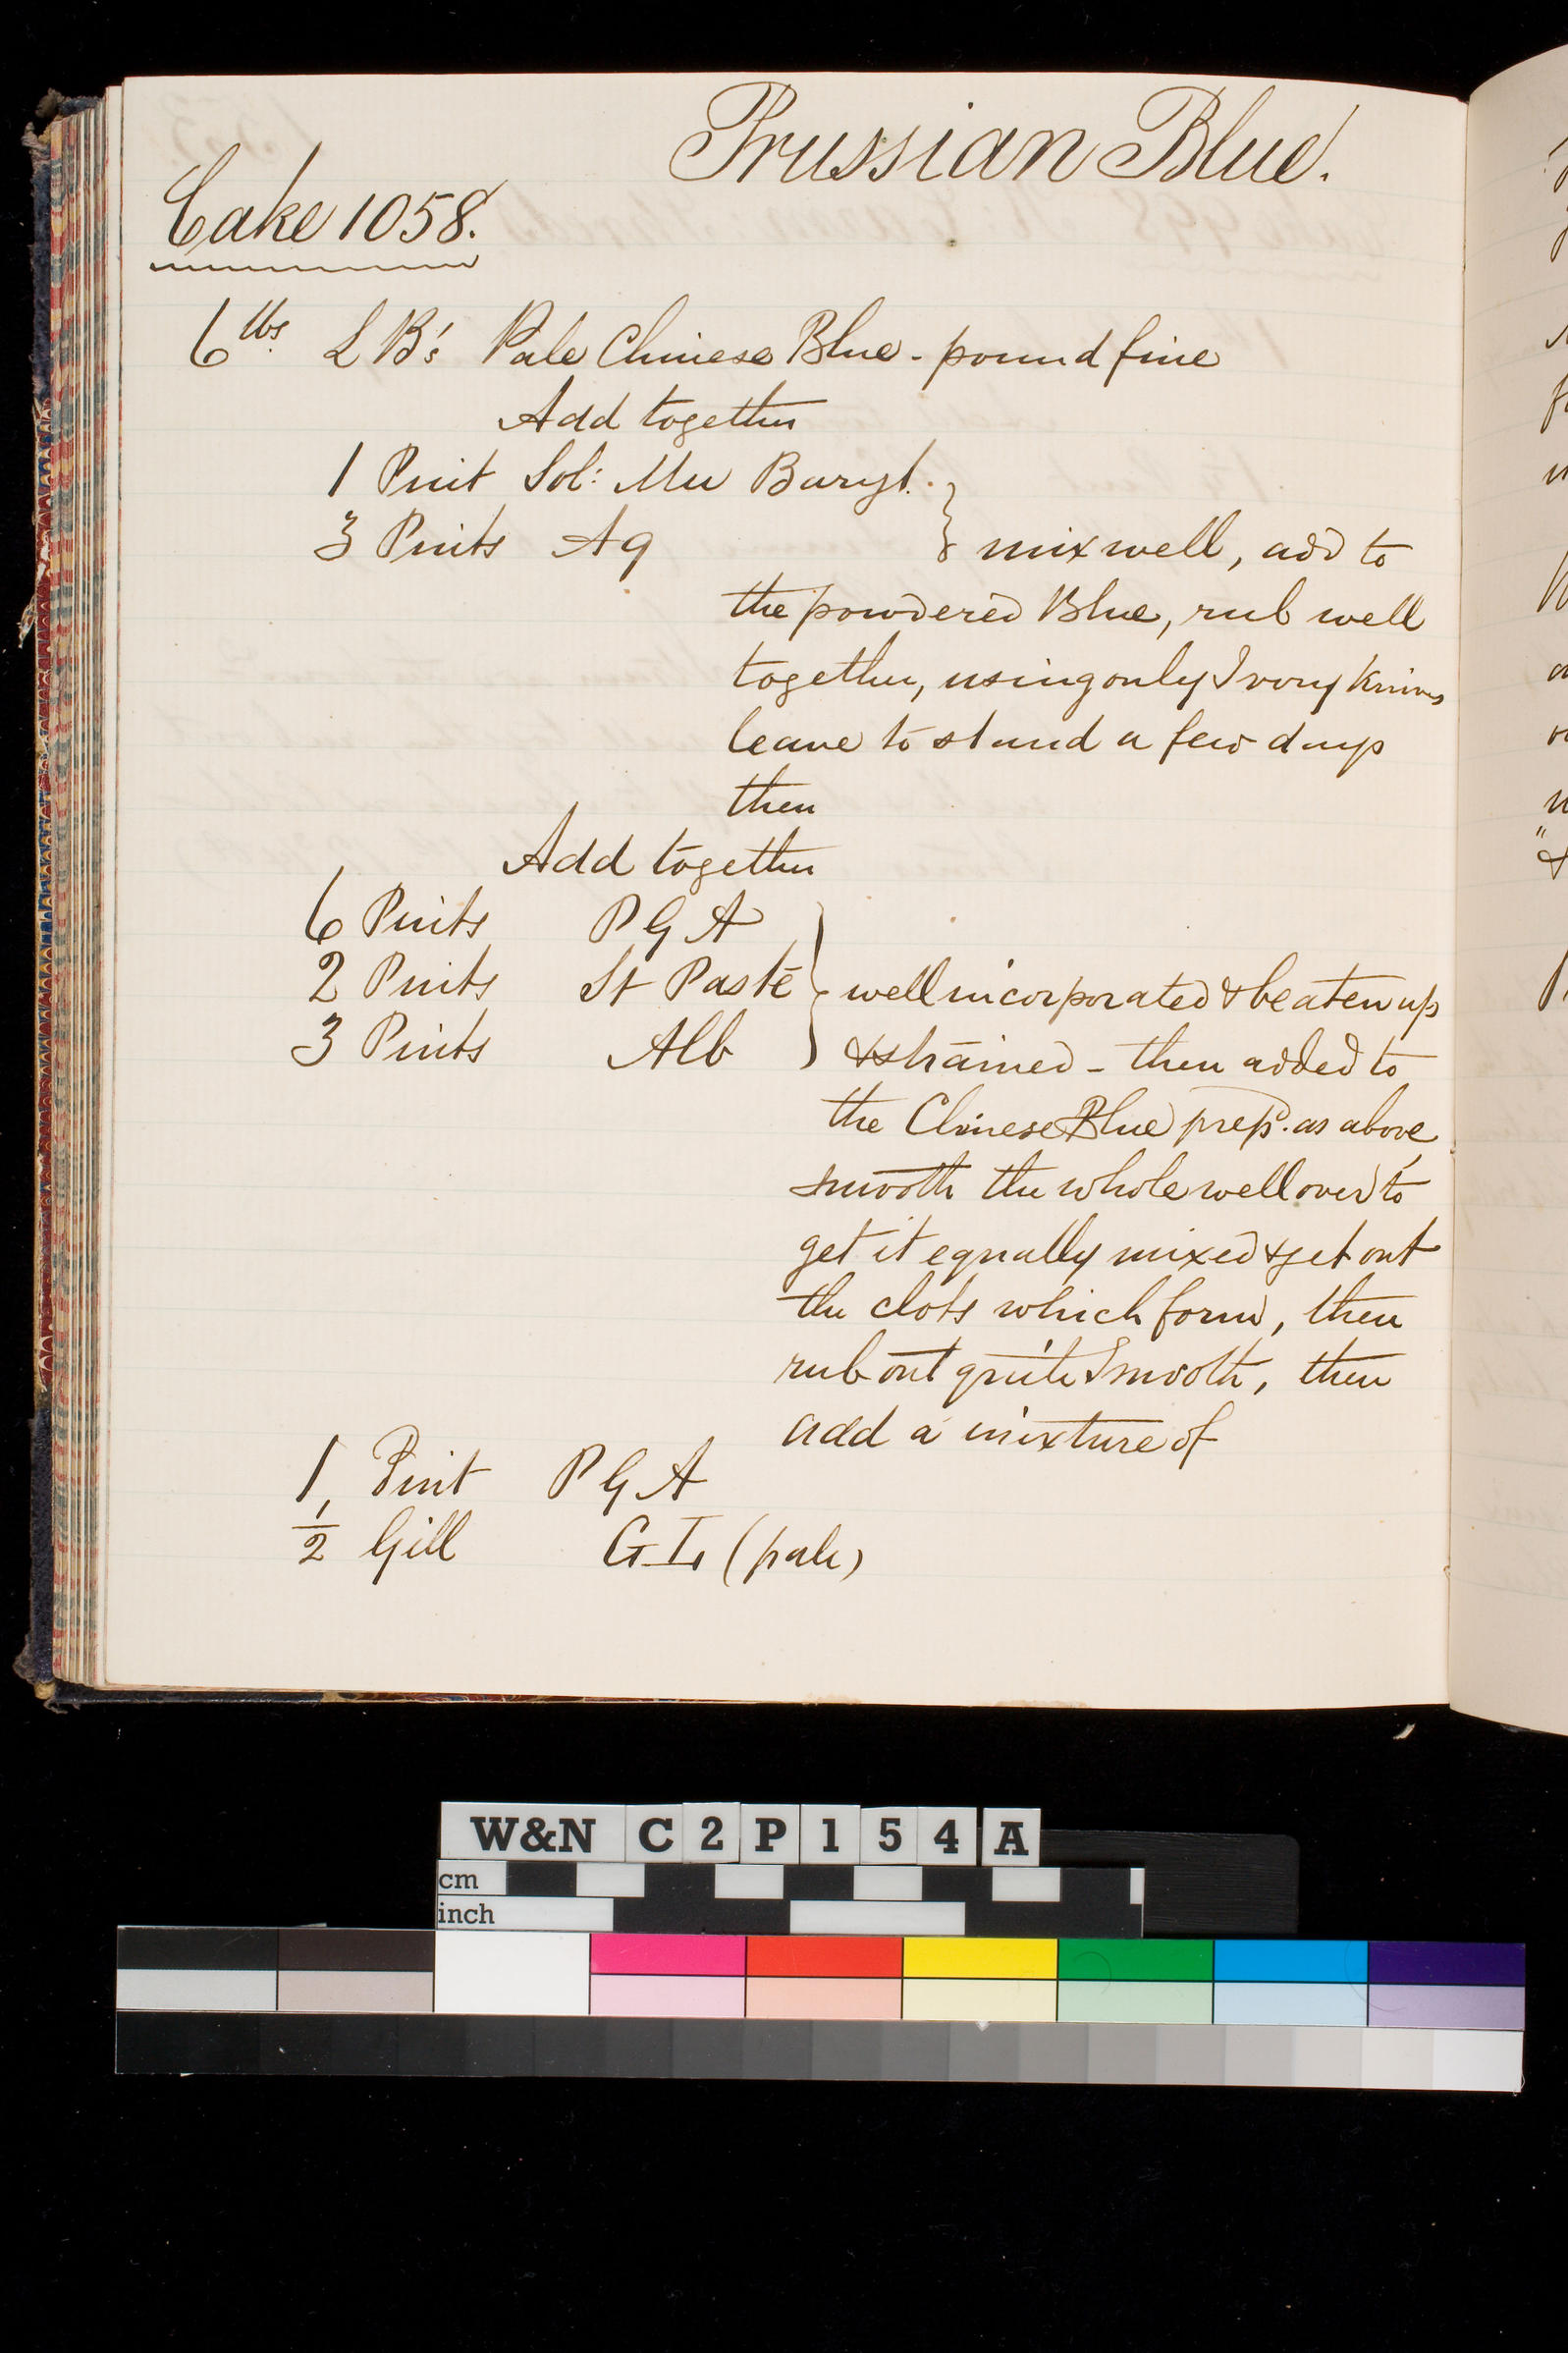 Prussian Blue.
Cake 1058.
6 lbs L B's Pale Chinese Blue - pound fine
Add together
1 Pint Sol: Mu Baryt.
3 Pints Aq } mix well, add to
the powdered Blue, rub well
together, using only Ivory Knives
leave to stand a few days
then
Add together
6 Pints P G A
2 Pints St Paste } well incorporated & beaten up
3 Pints Alb & strained - then added to
the Chinese Blue prepd. as above,
smooth the whole well over to
get it equally mixed & get out
the clots which form, then
rub out quite Smooth, then
add a mixture of
1 Pint P G A
1/2 Gill G I (pale)
W&N C2P154A
cm
inch